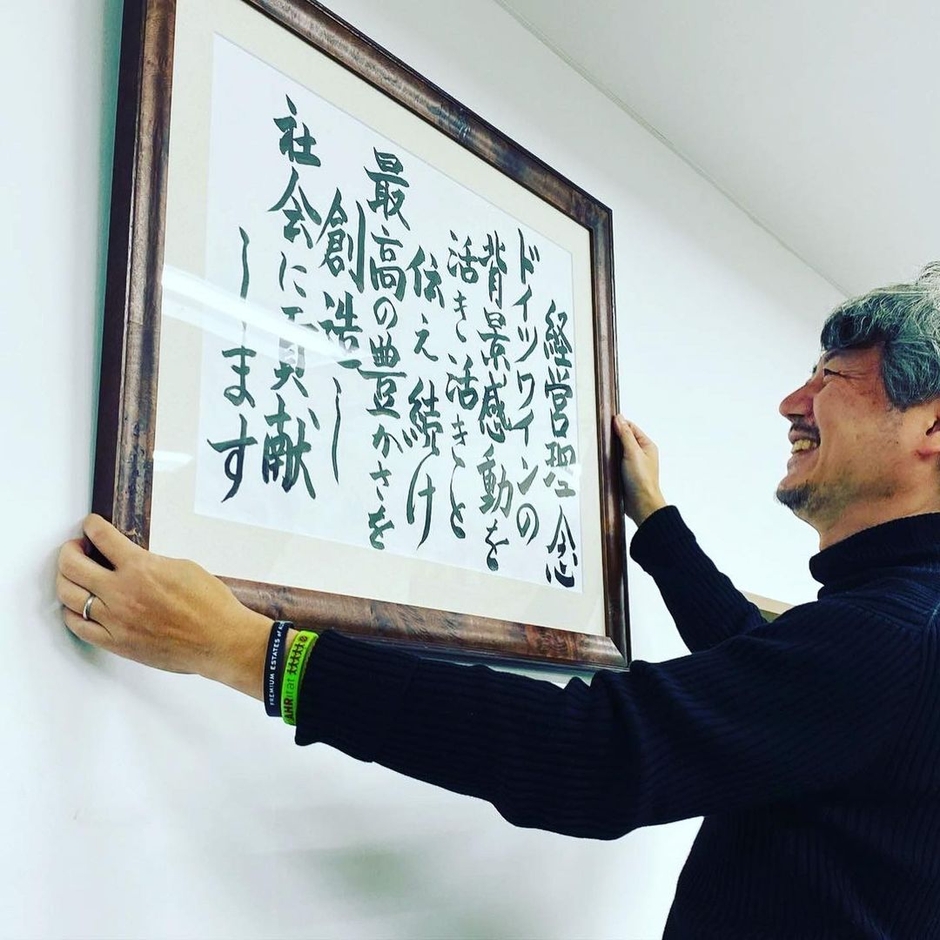 経営理念
ドイツワインの
背景感動を
活き活きと
伝え続け
最高の豊かさを
創造し
社会に貢献
します
PREMIUM ESTATES of
AHR